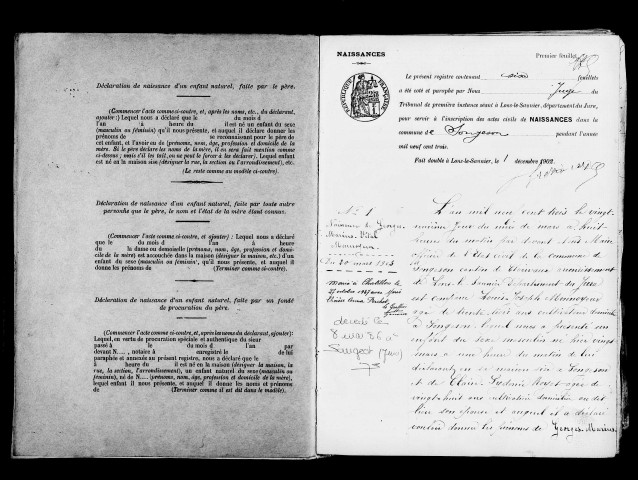 Déclaration de naissance d'un enfant naturel, faite par le père.
(Commencer l'acte comme ci-contre, et, après les noms, etc., du déclarant,
ajouter :) Lequel nous a déclaré que le du mois d
l'an à heure du il est né un enfant du sexe
(masculin ou féminin) qu'il nous présente, et auquel il déclare donner les
prénoms de se reconnaissant pour le père de
cet enfant, et l'avoir eu de (prénoms, nom, âge, profession et domicile de la
mère. Si le père déclare les noms de la mère, il en sera fait mention comme
ci-dessus ; mais s'il les tait, on ne peut le forcer à les déclarer). Lequel enfant
est né en la maison sise (désigner la rue, la section ou l'arrondissement), etc.
(Le reste comme au modèle ci-contre).
Déclaration de naissance d'un enfant naturel, faite par toute autre
personne que le père, le nom et l'état de la mère étant connus.
(Commencer comme ci-contre, et ajouter) : Lequel nous a déclaré
que le du mois d l'an à heure
du la dame ou demoiselle (prénoms, nom, âge, profession et domi-
cile de la mère) est accouchée dans la maison (désigner la maison, etc.) d'un
enfant du sexe (masculin ou féminin), qu'il nous présente, et auquel il
donne les prénoms de (Terminer comme ci-contre).
Déclaration de naissance d'un enfant naturel, faite par un fondé
de procuration du père.
(Commencer l'acte comme ci-contre, et, après les noms du déclarant, ajouter) :
Lequel, en vertu de procuration spéciale et authentique du sieur
passé à le du mois d l'an par
devant N...., notaire à enregistré le de lui
paraphée et annexée au présent registre, nous a déclaré que le
à heure du il est né en la maison (désigner la maison, la
rue, la section, l'arrondissement), un enfant naturel du sexe (masculin ou
féminin), né de N.... (prénoms, nom, âge, profession et domicile de la mère),
lequel enfant il nous a présenté, et auquel il donne les noms et prénoms
de (Terminer comme il est dit dans le modèle).
NAISSANCES
Premier feuillet
RÉPUBLIQUE FRANÇAISE
Le présent registre contenant feuillets
a été coté et paraphé par Nous Juge du
Tribunal de première instance séant à Lons-le-Saunier, département du Jura,
pour servir à l'inscription des actes civils de NAISSANCES dans la
commune de Songeson pendant l'année
mil neuf cent trois.
Fait double à Lons-le-Saunier, le 1 décembre 1902.
N° 1
Naissance de Georges
Marius
du 20 mars 1903
Marié à Châtillon le
décédé le
8 mai
(Jura)
L'an mil neuf cent trois le vingt
unième jour du mois de mars à huit
heures du matin par devant nous Maire
officier de l'état civil de la commune de
Songeson canton de Clairvaux arrondissement
de Lons le Saunier département du Jura
est comparu Louis Joseph
âgé de trente trois ans cultivateur domicilié
à Songeson lequel nous a présenté un
enfant du sexe masculin né hier vingt
mars à une heure du matin de lui
déclarant en sa maison sise à Songeson
et de
vingt huit ans cultivatrice domiciliée au dit
lieu son épouse et auquel il a déclaré
vouloir donner les prénoms de Georges Marius